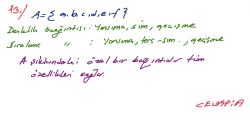 13) A = {a,b,c,d,e,f}
Denklik bağıntısı: Yansıma, sim, geçişme
Sıralama " : Yansıma, ters-sim., geçişme
A şıkkındaki özel bir bağıntıdır tüm
özellikleri sağlar.
CEVAP: A